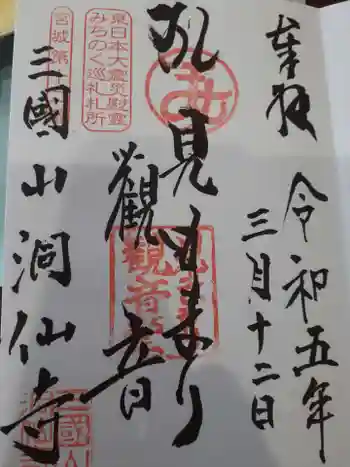 奉拝
令和五年
三月十二日
見まもり
観音
東日本大震災慰霊
みちのく巡礼札所
宮城第
三國山洞仙寺